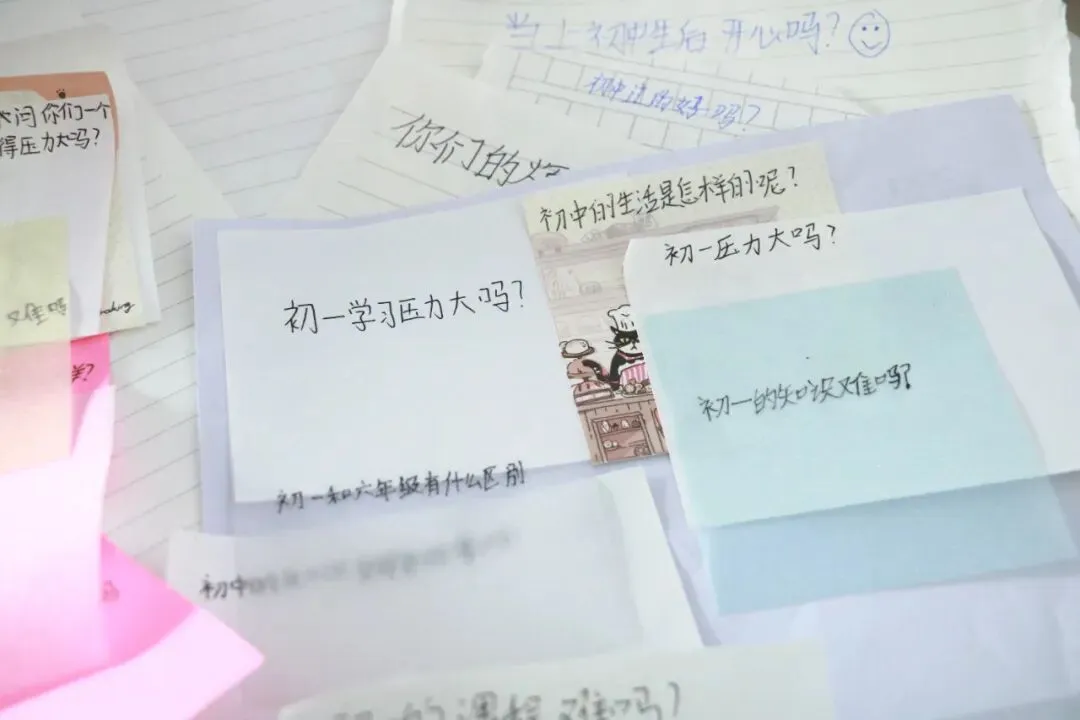 当上初中生后开心吗?
初中过的好吗?
你们的
问你们一个
得压力大吗?
初中的生活是怎样的呢?
初一压力大吗?
初一学习压力大吗?
难吗
初一的知识难吗?
初一和六年级有什么区别
初中
的课程难吗?